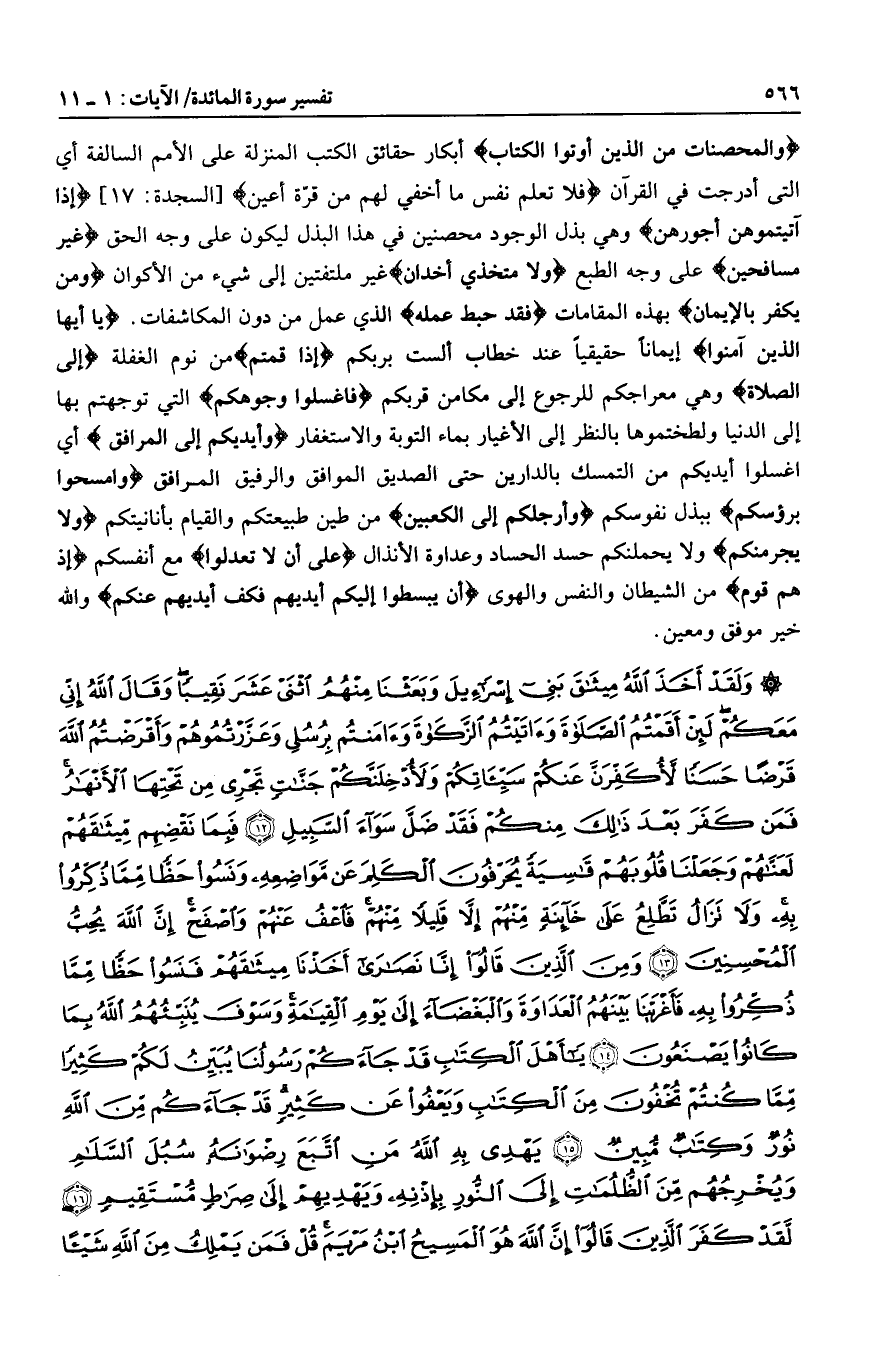 ٥٦٦ تفسير سورة المائدة/ الآيات: ١ ـ ١١
﴿والمحصنات من الذين أوتوا الكتاب﴾ أبكار حقائق الكتب المنزلة على الأمم السالفة أي
التى أدرجت في القرآن ﴿فلا تعلم نفس ما أخفي لهم من قرّة أعين﴾ [السجدة: ١٧] ﴿إذا
آتيتموهن أجورهن﴾ وهي بذل الوجود محصنين في هذا البذل ليكون على وجه الحق ﴿غير
مسافحين﴾ على وجه الطبع ﴿ولا متخذي أخدان﴾غير ملتفتين إلى شيء من الأكوان ﴿ومن
يكفر بالإيمان﴾ بهذه المقامات ﴿فقد حبط عمله﴾ الذي عمل من دون المكاشفات. ﴿يا أيها
الذين آمنوا﴾ إيماناً حقيقياً عند خطاب ألست بربكم ﴿إذا قمتم﴾من نوم الغفلة ﴿إلى
الصلاة﴾ وهي معراجكم للرجوع إلى مكامن قربكم ﴿فاغسلوا وجوهكم﴾ التي توجهتم بها
إلى الدنيا ولطختموها بالنظر إلى الأغيار بماء التوبة والاستغفار ﴿وأيديكم إلى المرافق ﴾ أي
اغسلوا أيديكم من التمسك بالدارين حتى الصديق الموافق والرفيق المرافق ﴿وامسحوا
برؤسكم﴾ ببذل نفوسكم ﴿وأرجلكم إلى الكعبين﴾ من طين طبيعتكم والقيام بأنانيتكم ﴿ولا
يجرمنكم﴾ ولا يحملنكم حسد الحساد وعداوة الأنذال ﴿على أن لا تعدلوا﴾ مع أنفسكم ﴿إذ
هم قوم﴾ من الشيطان والنفس والهوى ﴿أن يبسطوا إليكم أيديهم فكف أيديهم عنكم﴾ والله
خير موفق ومعين.
۞ وَلَقَدْ أَخَذَ ٱللَّهُ مِيثَٰقَ بَنِىٓ إِسْرَٰٓءِيلَ وَبَعَثْنَا مِنْهُمُ ٱثْنَىْ عَشَرَ نَقِيبًاۖ وَقَالَ ٱللَّهُ إِنِّى
مَعَكُمْۖ لَئِنْ أَقَمْتُمُ ٱلصَّلَوٰةَ وَءَاتَيْتُمُ ٱلزَّكَوٰةَ وَءَامَنتُم بِرُسُلِى وَعَزَّرْتُمُوهُمْ وَأَقْرَضْتُمُ ٱللَّهَ
قَرْضًا حَسَنًا لَّأُكَفِّرَنَّ عَنكُمْ سَيِّـَٔاتِكُمْ وَلَأُدْخِلَنَّكُمْ جَنَّٰتٍ تَجْرِى مِن تَحْتِهَا ٱلْأَنْهَٰرُۚ
فَمَن كَفَرَ بَعْدَ ذَٰلِكَ مِنكُمْ فَقَدْ ضَلَّ سَوَآءَ ٱلسَّبِيلِ ۝١٢ فَبِمَا نَقْضِهِم مِّيثَٰقَهُمْ
لَعَنَّٰهُمْ وَجَعَلْنَا قُلُوبَهُمْ قَٰسِيَةًۖ يُحَرِّفُونَ ٱلْكَلِمَ عَن مَّوَاضِعِهِۦۙ وَنَسُوا۟ حَظًّا مِّمَّا ذُكِّرُوا۟
بِهِۦۚ وَلَا تَزَالُ تَطَّلِعُ عَلَىٰ خَآئِنَةٍ مِّنْهُمْ إِلَّا قَلِيلًا مِّنْهُمْۖ فَٱعْفُ عَنْهُمْ وَٱصْفَحْۚ إِنَّ ٱللَّهَ يُحِبُّ
ٱلْمُحْسِنِينَ ۝١٣ وَمِنَ ٱلَّذِينَ قَالُوٓا۟ إِنَّا نَصَٰرَىٰٓ أَخَذْنَا مِيثَٰقَهُمْ فَنَسُوا۟ حَظًّا مِّمَّا
ذُكِّرُوا۟ بِهِۦ فَأَغْرَيْنَا بَيْنَهُمُ ٱلْعَدَاوَةَ وَٱلْبَغْضَآءَ إِلَىٰ يَوْمِ ٱلْقِيَٰمَةِۚ وَسَوْفَ يُنَبِّئُهُمُ ٱللَّهُ بِمَا
كَانُوا۟ يَصْنَعُونَ ۝١٤ يَٰٓأَهْلَ ٱلْكِتَٰبِ قَدْ جَآءَكُمْ رَسُولُنَا يُبَيِّنُ لَكُمْ كَثِيرًا
مِّمَّا كُنتُمْ تُخْفُونَ مِنَ ٱلْكِتَٰبِ وَيَعْفُوا۟ عَن كَثِيرٍۚ قَدْ جَآءَكُم مِّنَ ٱللَّهِ
نُورٌ وَكِتَٰبٌ مُّبِينٌ ۝١٥ يَهْدِى بِهِ ٱللَّهُ مَنِ ٱتَّبَعَ رِضْوَٰنَهُۥ سُبُلَ ٱلسَّلَٰمِ
وَيُخْرِجُهُم مِّنَ ٱلظُّلُمَٰتِ إِلَى ٱلنُّورِ بِإِذْنِهِۦ وَيَهْدِيهِمْ إِلَىٰ صِرَٰطٍ مُّسْتَقِيمٍ ۝١٦
لَّقَدْ كَفَرَ ٱلَّذِينَ قَالُوٓا۟ إِنَّ ٱللَّهَ هُوَ ٱلْمَسِيحُ ٱبْنُ مَرْيَمَۚ قُلْ فَمَن يَمْلِكُ مِنَ ٱللَّهِ شَيْـًٔا